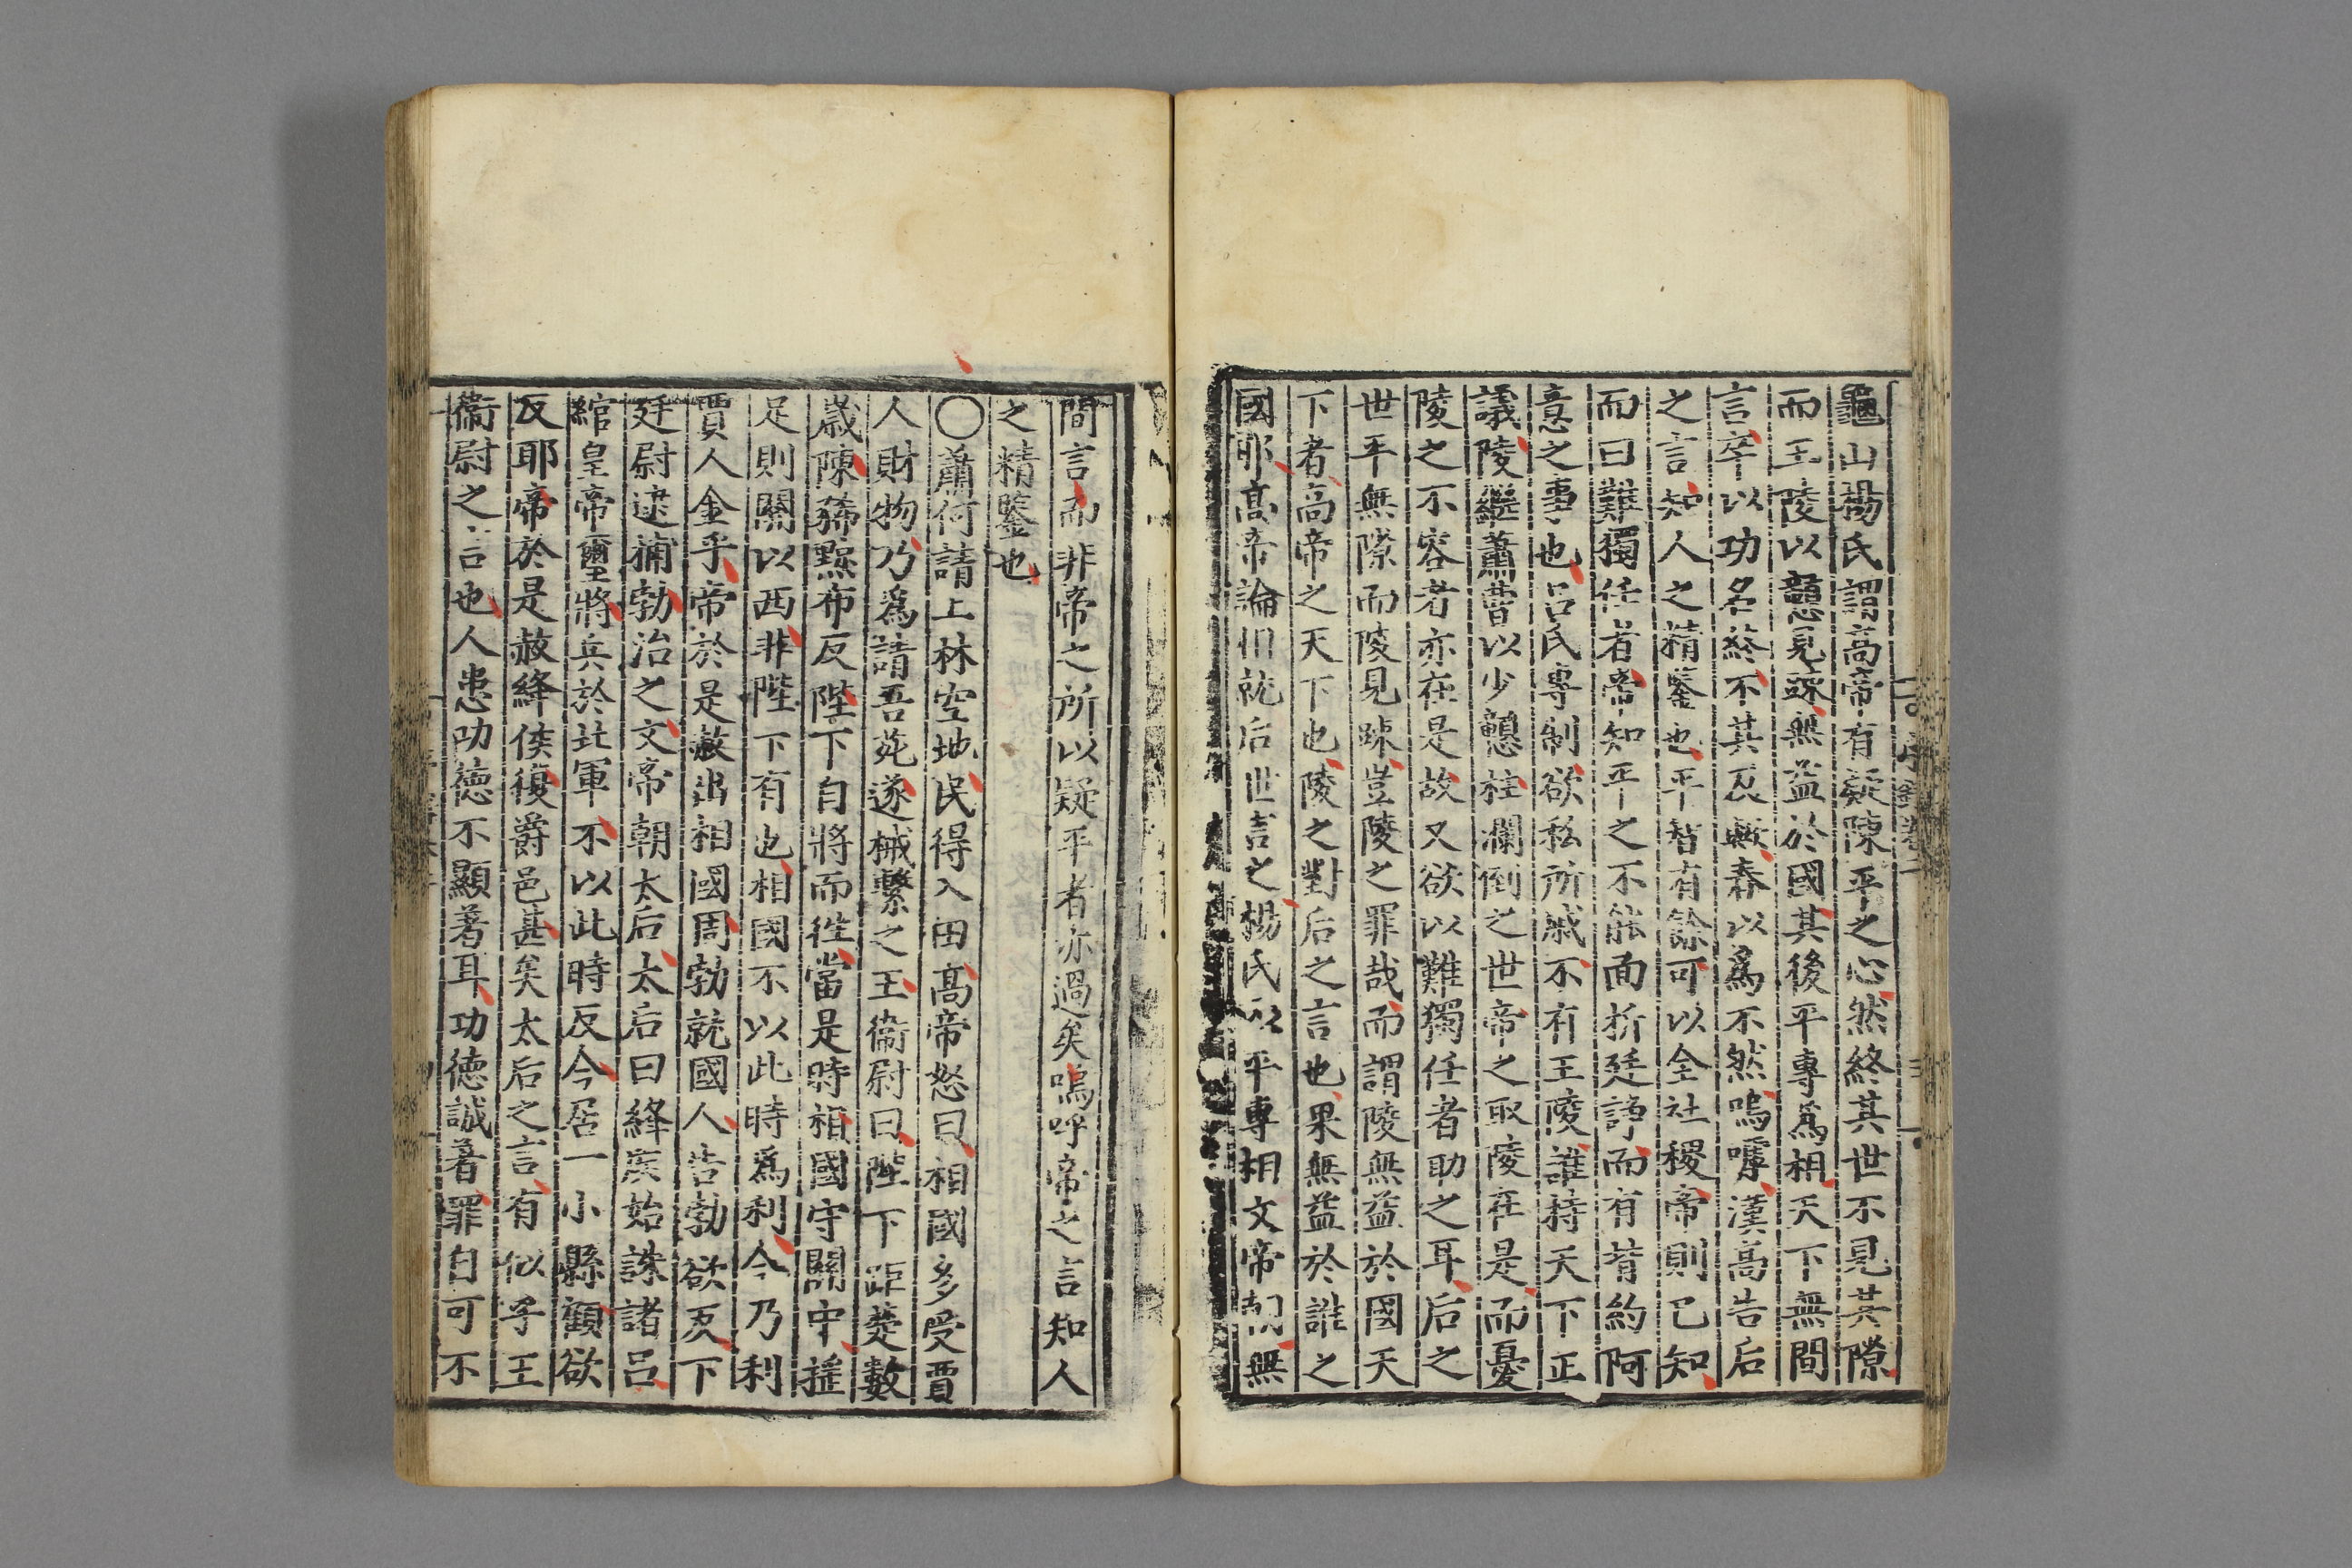 龜山楊氏謂高帝有疑陳平之心然終其世不見其隙
而王陵以戇見疎無益於國其後平專爲相天下無間
言卒以功名終不其反歟春以爲不然嗚嘑漢高告后
之言知人之精鑒也平智有餘可以全社稷帝則已知
而曰難獨任者帝知平之不能面折廷諍而有背約阿
意之事也呂氏專制欲私所戚不有王陵誰持天下正
議陵繼蕭曹以少戇柱瀾倒之世帝之取陵在是而憂
陵之不容者亦在是故又欲以難獨任者助之耳后之
世平無隙而陵見疎豈陵之罪哉而謂陵無益於國天
下者高帝之天下也陵之對后之言也果無益於誰之
國耶高帝論相就后世言之楊氏以平專相文帝朝無
間言而非帝之所以疑平者亦過矣嗚呼帝之言知人
之精鑒也
〇蕭何請上林空地民得入田高帝怒曰相國多受賈
人財物乃爲請吾苑遂械繫之王衞尉曰陛下距楚數
歲陳豨黥布反陛下自將而徃當是時相國守關中搖
足則關以西非陛下有也相國不以此時爲利今乃利
賈人金乎帝於是赦出相國周勃就國人告勃欲反下
廷尉逮捕勃治之文帝朝太后太后曰絳侯始誅諸呂
綰皇帝璽將兵於北軍不以此時反今居一小縣顧欲
反耶帝於是赦絳侯復爵邑甚矣太后之言有似乎王
衞尉之言也人患功德不顯著耳功德誠著罪白可不